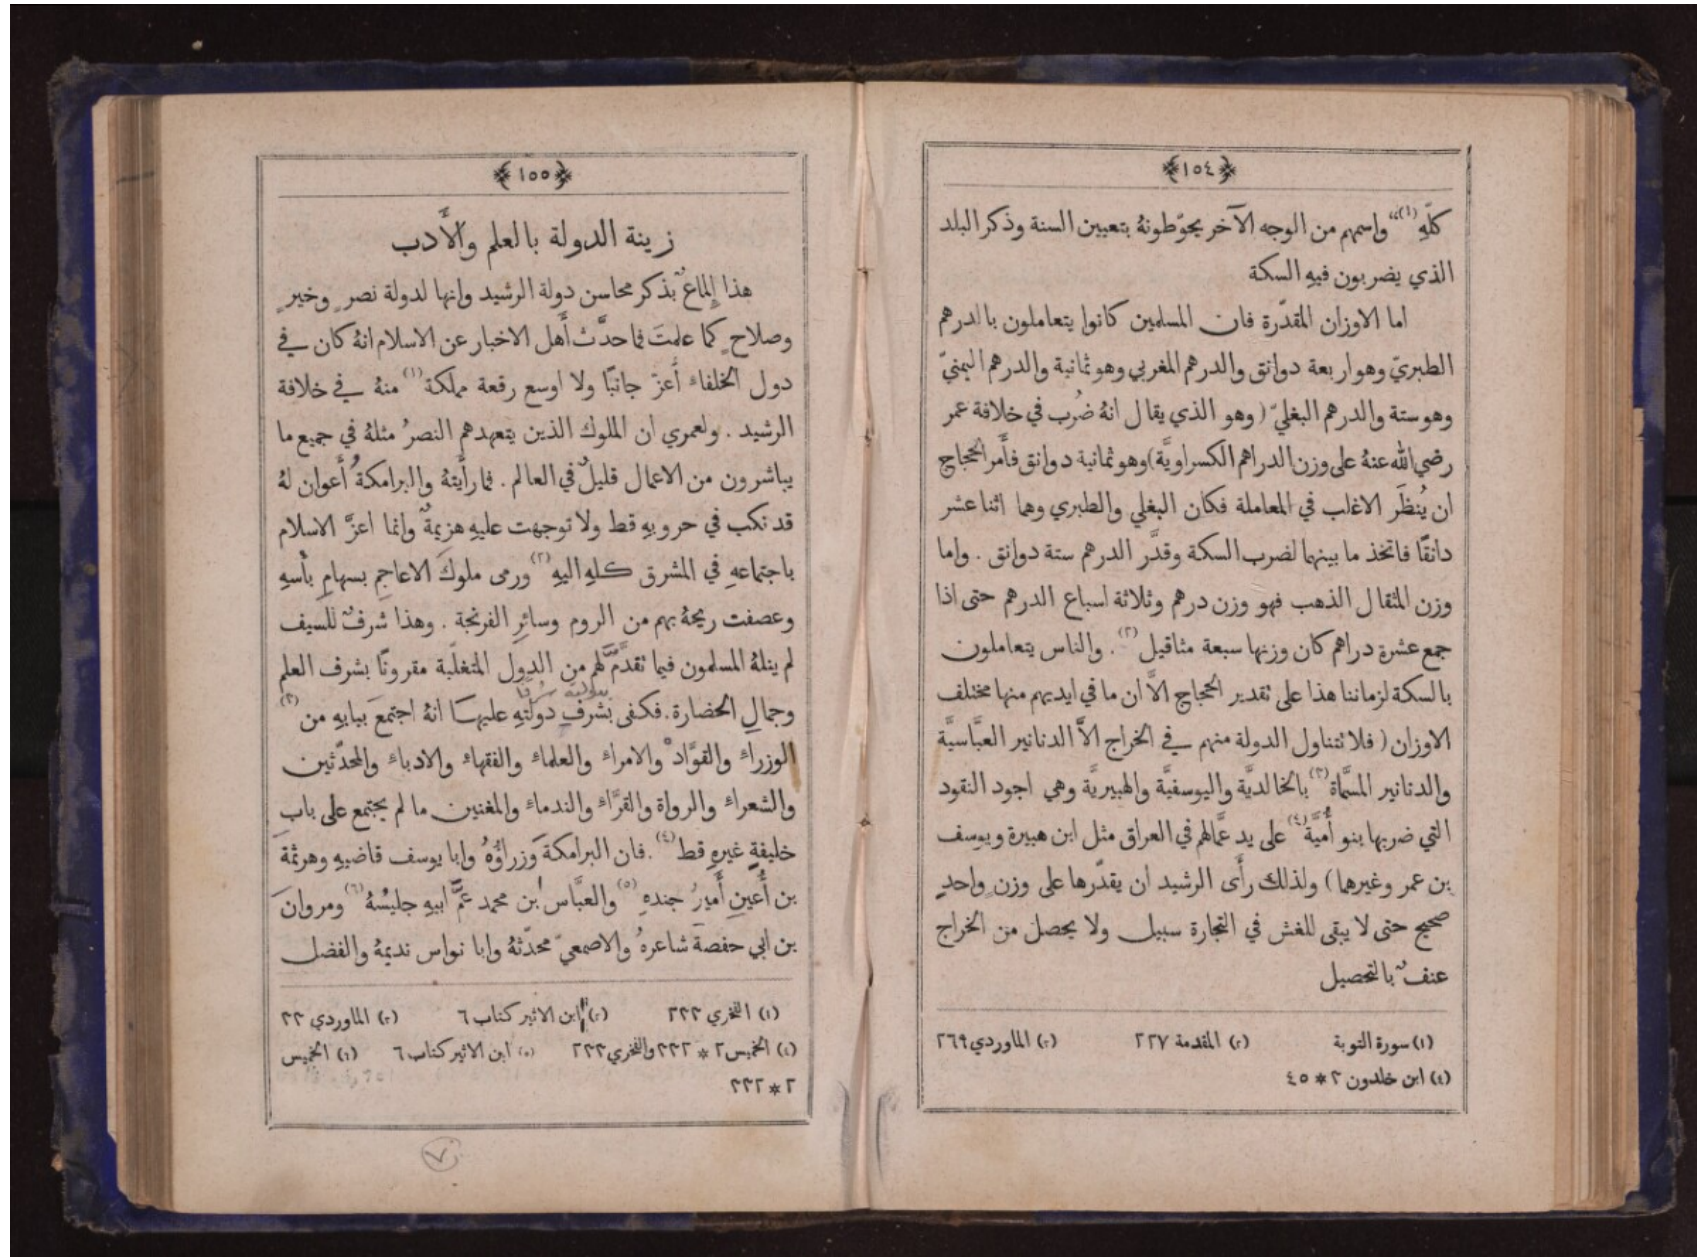 ١٥٤
كلّهِ (١)“ واسمهم من الوجه الآخر يحوّطونهُ بتعيين السنة وذكر البلد
الذي يضربون فيهِ السكة
اما الاوزان المقدّرة فان المسلمين كانوا يتعاملون بالدرهم
الطبريّ وهو اربعة دوانق والدرهم المغربي وهو ثمانية والدرهم اليمنيّ
وهو ستة والدرهم البغليّ (وهو الذي يقال انهُ ضُرب في خلافة عمر
رضي الله عنهُ على وزن الدراهم الكسراويَّة) وهو ثمانية دوانق فأَمر الحجاج
ان يُنظَر الاغلب في المعاملة فكان البغلي والطبري وهما اثنا عشر
دانقًا فاتخذ ما بينهما لضرب السكة وقدَّر الدرهم ستة دوانق . واما
وزن المثقال الذهب فهو وزن درهم وثلاثة اسباع الدرهم حتى اذا
جمع عشرة دراهم كان وزنها سبعة مثاقيل (٢) . والناس يتعاملون
بالسكة لزماننا هذا على تقدير الحجاج الاَّ ان ما في ايديهم منها مختلف
الاوزان (فلا تتناول الدولة منهم في الخراج الاَّ الدنانير العبَّاسيَّة
والدنانير المسمَّاة (٣) بالخالديَّة واليوسفيَّة والهبيريَّة وهي اجود النقود
التي ضربها بنو أُميَّة (٤) على يد عمَّالهم في العراق مثل ابن هبيرة ويوسف
بن عمر وغيرهما) ولذلك رأَى الرشيد ان يقدّرها على وزنٍ واحدٍ
صحيح حتى لا يبقى للغش في التجارة سبيل ولا يحصل من الخراج
عنفٌ بالتحصيل
(١) سورة التوبة (٢) المقدمة ٢٢٧ (٣) الماوردي ٢٦٩
(٤) ابن خلدون ٣ * ٤٥
١٥٥
زينة الدولة بالعلم والأَدب
هذا إِلماعٌ بذكر محاسن دولة الرشيد وانها لدولة نصرٍ وخيرٍ
وصلاحٍ كما علمتَ فما حدَّث أَهل الاخبار عن الاسلام انهُ كان في
دول الخلفاء أَعزّ جانبًا ولا اوسع رقعة مملكة (١) منهُ في خلافة
الرشيد . ولعمري ان الملوك الذين يتعهدهم النصرُ مثلهُ في جميع ما
يباشرون من الاعمال قليلٌ في العالم . فما رأَيتهُ والبرامكةُ أَعوان لهُ
قد نكب في حروبهِ قط ولا توجهت عليهِ هزيمةٌ وانما اعزَّ الاسلام
باجتماعهِ في المشرق كلهِ اليهِ (٢) ورمى ملوكَ الاعاجم بسهامِ بأْسهِ
وعصفت ريحهُ بهم من الروم وسائرِ الفرنجة . وهذا شرفٌ للسيف
لم ينلهُ المسلمون فيما تقدَّم لهم من الدول المتغلّبة مقرونًا بشرف العلم
وجمالِ الحضارة . فكفى بشرفِ دولتهِ عليهـا انهُ اجتمعَ ببابهِ من (٣)
الوزراء والقوَّاد والامراء والعلماء والفقهاء والادباء والمحدّثين
والشعراء والرواة والقرَّاء والندماء والمغنين ما لم يجتمع على بابِ
خليفةٍ غيرهِ قط (٤) . فان البرامكةَ وزراؤُهُ وابا يوسف قاضيهِ وهرثمة
بن أَعينِ أَميرُ جندهِ (٥) والعبَّاس بن محمد عمَّ ابيهِ جليسُهُ (٦) ومروانَ
بن ابي حفصة شاعرهُ والاصمعيّ محدّثهُ وابا نواس نديمهُ والفضل
(١) الفخري ٢٣٣ (٢) ابن الاثير كتاب ٦ (٣) الماوردي ٢٣
(٤) الخميس ٢ * ٣٣٢ والفخري ٢٣٣ (٥) ابن الاثير كتاب ٦ (٦) الخميس
٢ * ٣٣٢
٧